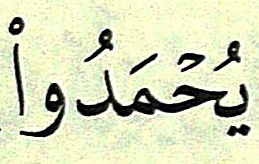 يُحۡمَدُواْ